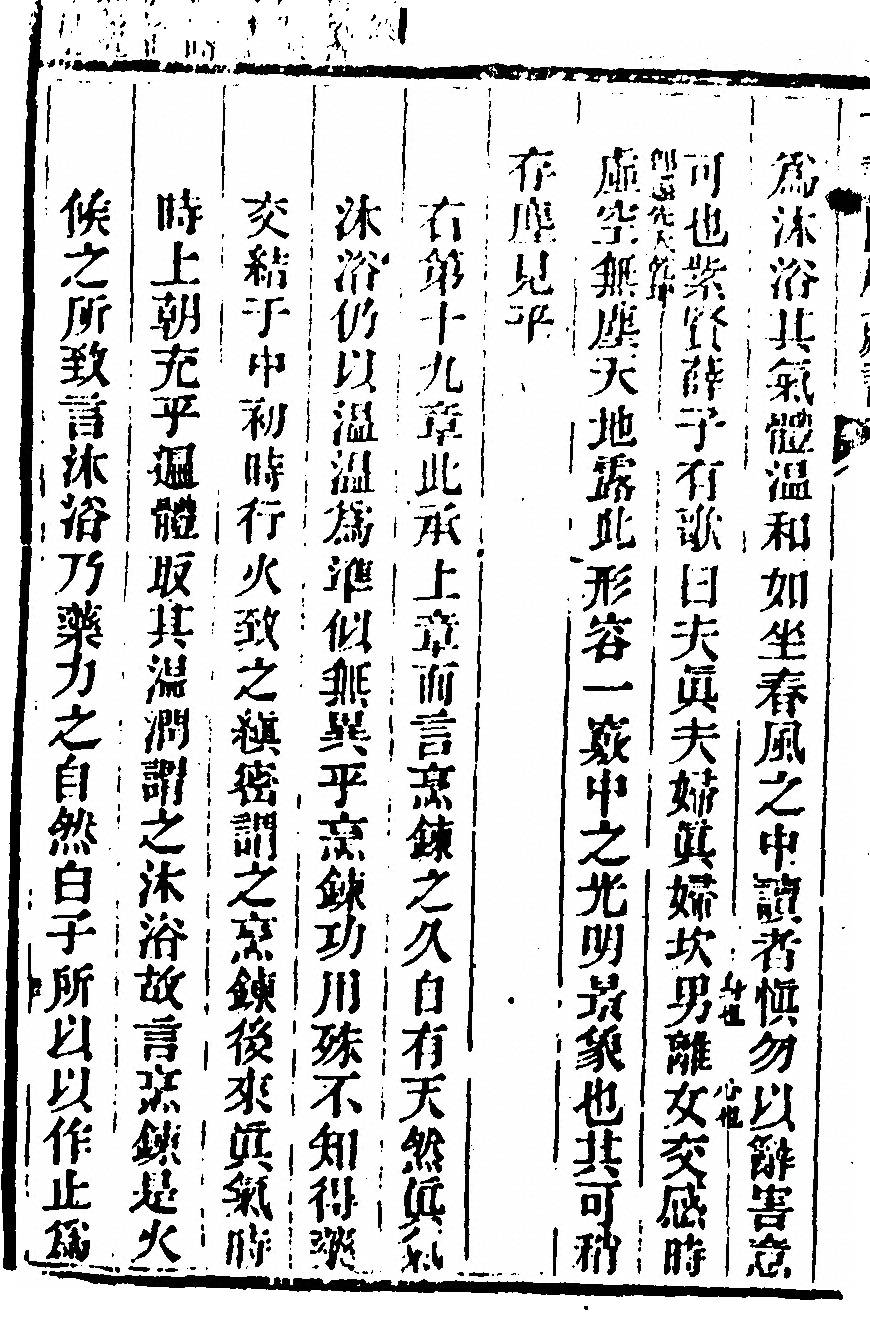 為沐浴其氣體溫和如坐春風之中讀者慎勿以辭害意
可也紫賢薛子有歌曰夫眞夫婦眞婦坎男身也離女心也交感時
虛空無塵天地露此形容一竅中之光明景象也其可稍
存塵見乎
右第十九章此承上章而言烹鍊之久自有天然眞氣
沐浴仍以溫溫為準似無異乎烹鍊功用殊不知得藥
交結于中初時行火致之縝密謂之烹鍊後來眞氣時
時上朝充乎遍體取其溫潤謂之沐浴故言烹鍊是火
候之所致言沐浴乃藥力之自然白子所以以作止為